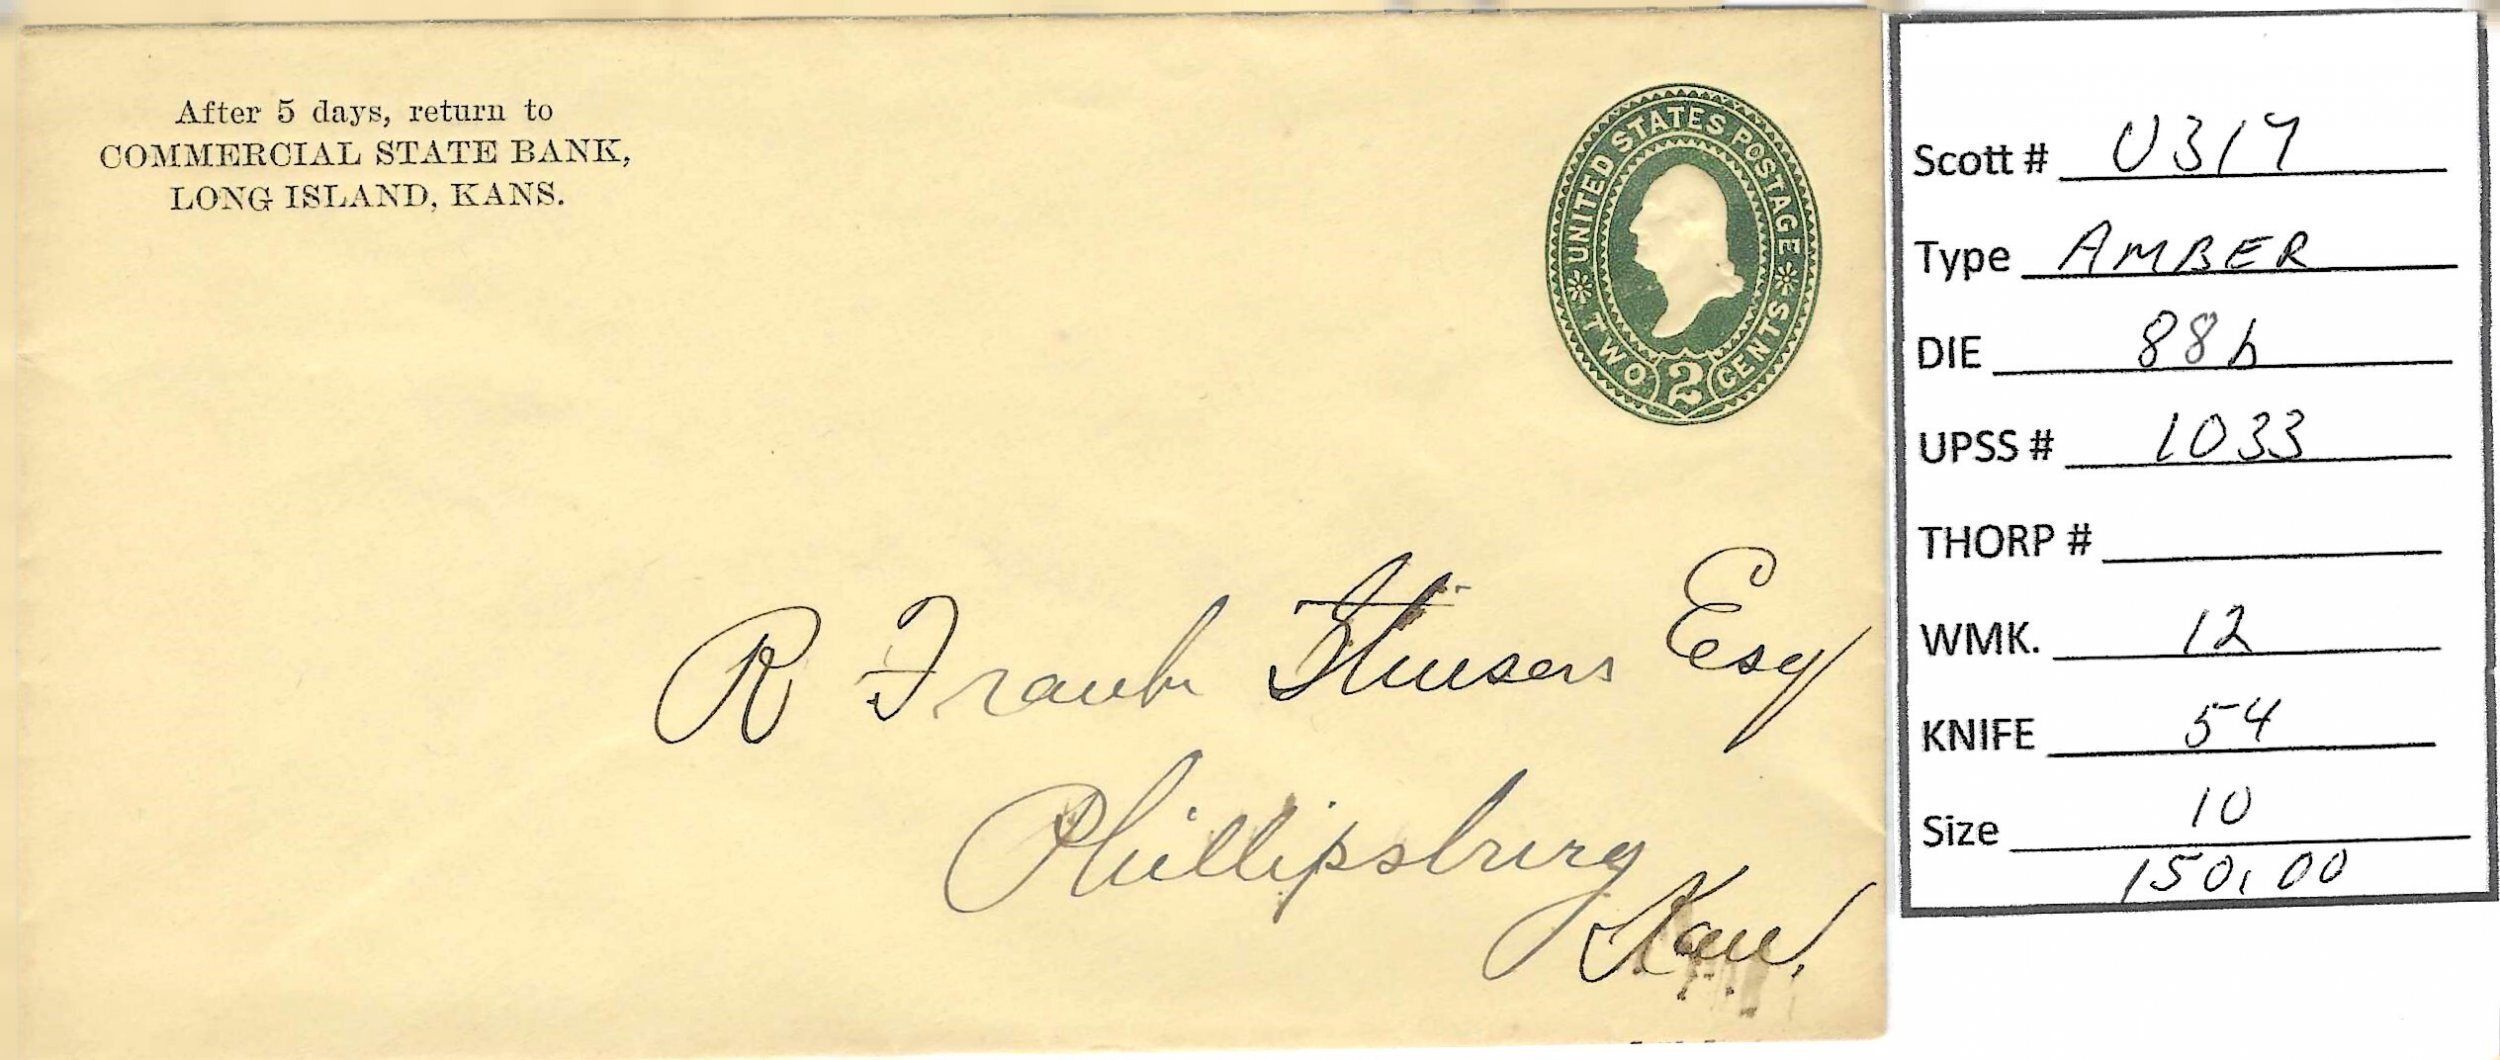 After 5 days, return to
COMMERCIAL STATE BANK,
LONG ISLAND, KANS.
UNITED STATES POSTAGE
TWO 2 CENTS
R Frank Stinson Esq
Phillipsburg
Kan.
Scott # U317
Type AMBER
DIE 88b
UPSS # 1033
THORP #
WMK. 12
KNIFE 54
Size 10
150.00